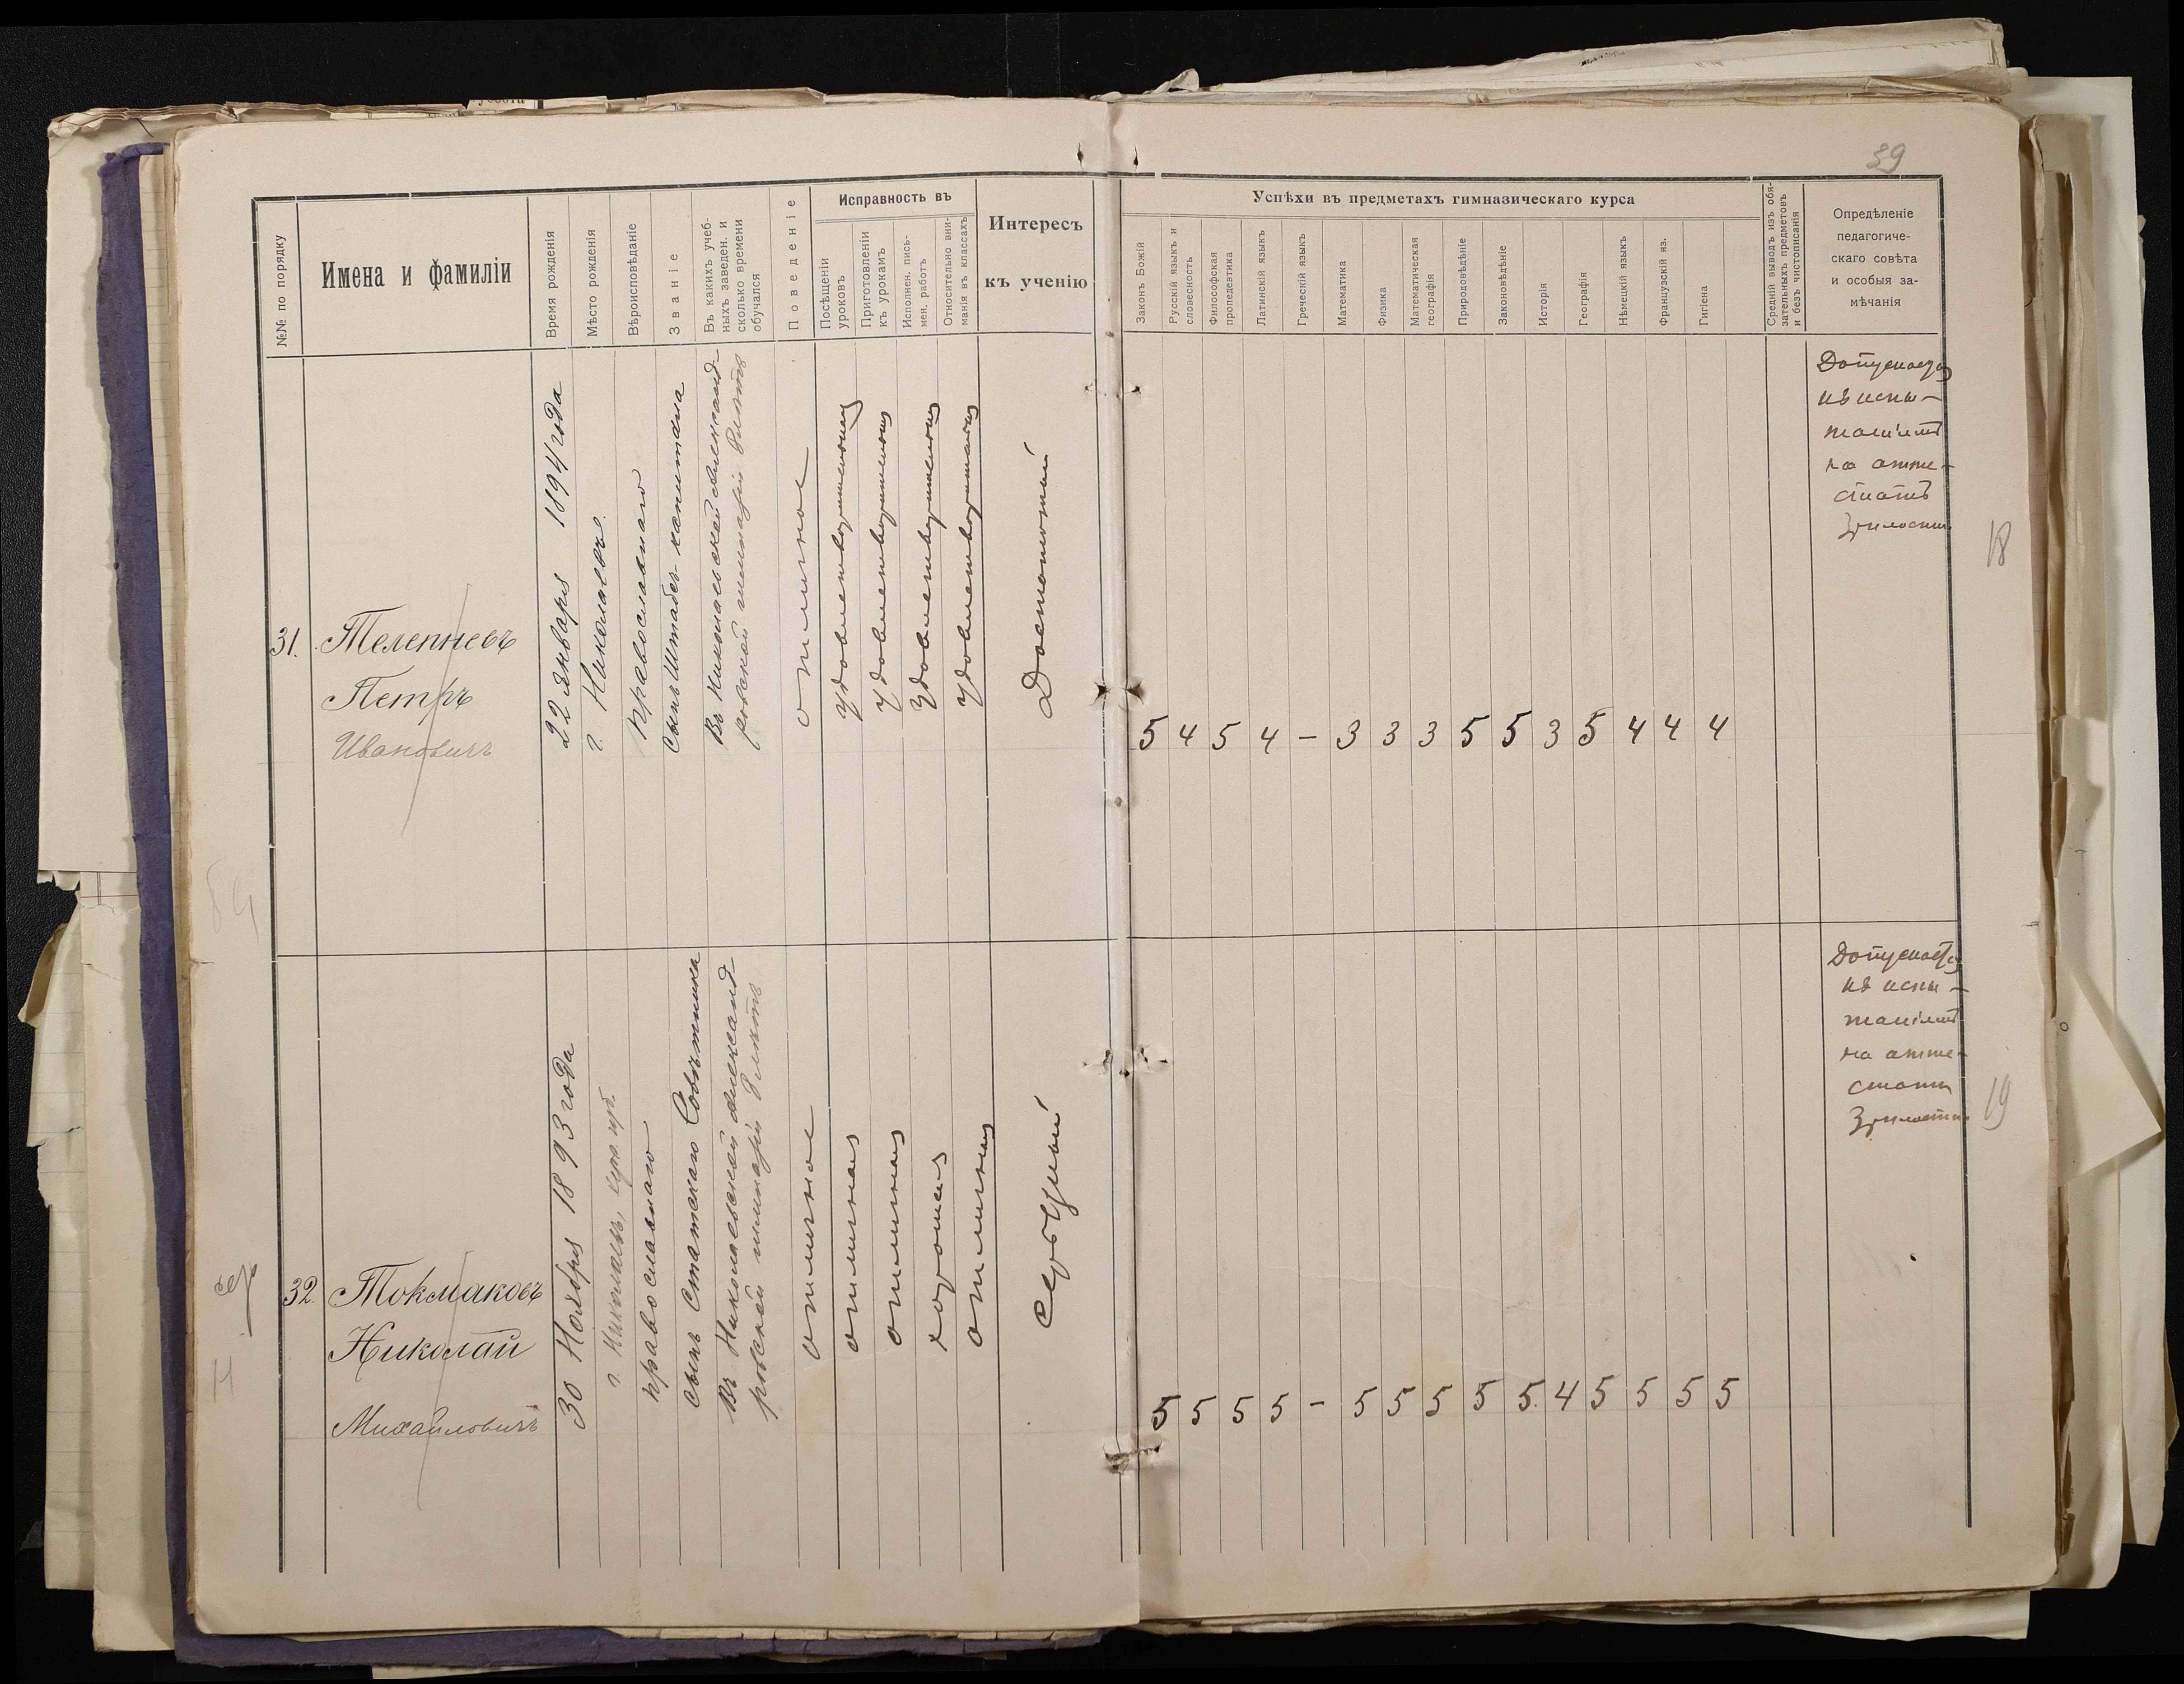 39
№№ по порядку
Имена и фамиліи
Время рожденія
Мѣсто рожденія
Вѣроисповѣданіе
Званіе
Въ какихъ учеб-
ныхъ заведен. и
сколько времени
обучался
Поведеніе
Исправность въ
Посѣщеніи
уроковъ
Приготовленіи
къ урокамъ
Исполнен. пись-
мен. работъ
Относительно вни-
манія въ классахъ
Интересъ
къ ученію
Успѣхи въ предметахъ гимназическаго курса
Законъ Божій
Русскій языкъ и
словесность
Философская
пропедевтика
Латинскій языкъ
Греческій языкъ
Математика
Физика
Математическая
географія
Природовѣдѣніе
Законовѣдѣніе
Исторія
Географія
Нѣмецкій языкъ
Французскій яз.
Гигіена
Средній выводъ изъ обя-
зательныхъ предметовъ
и безъ чистописанія
Опредѣленіе
педагогиче-
скаго совѣта
и особыя за-
мѣчанія
31.
Телепневъ
Петръ
Ивановичъ
22 Января 1894 года
г. Николаевъ.
православнаго
сынъ Штабсъ-капитана
Въ Николаевской Александ-
ровской гимназіи 8 лѣтъ
отличное
удовлетворительная
удовлетворительная
удовлетворительная
удовлетворительная
Достаточный
5 4 5 4 – 3 3 3 5 5 3 5 4 4 4
Допускается
къ испы-
таніямъ
на атте-
статъ
Зрѣлости
18
32.
Токмаковъ
Николай
Михайловичъ
30 Ноября 1893 года
г. Николаевъ,
православнаго
сынъ Статскаго Совѣтника
Въ Николаевской Александ-
ровской гимназіи 8 лѣтъ
отличное
отличная
отличная
хорошая
отличная
5 5 5 5 – 5 5 5 5 5. 4 5 5 5 5
Допускается
къ испы-
таніямъ
на атте-
статъ
Зрѣлости
19